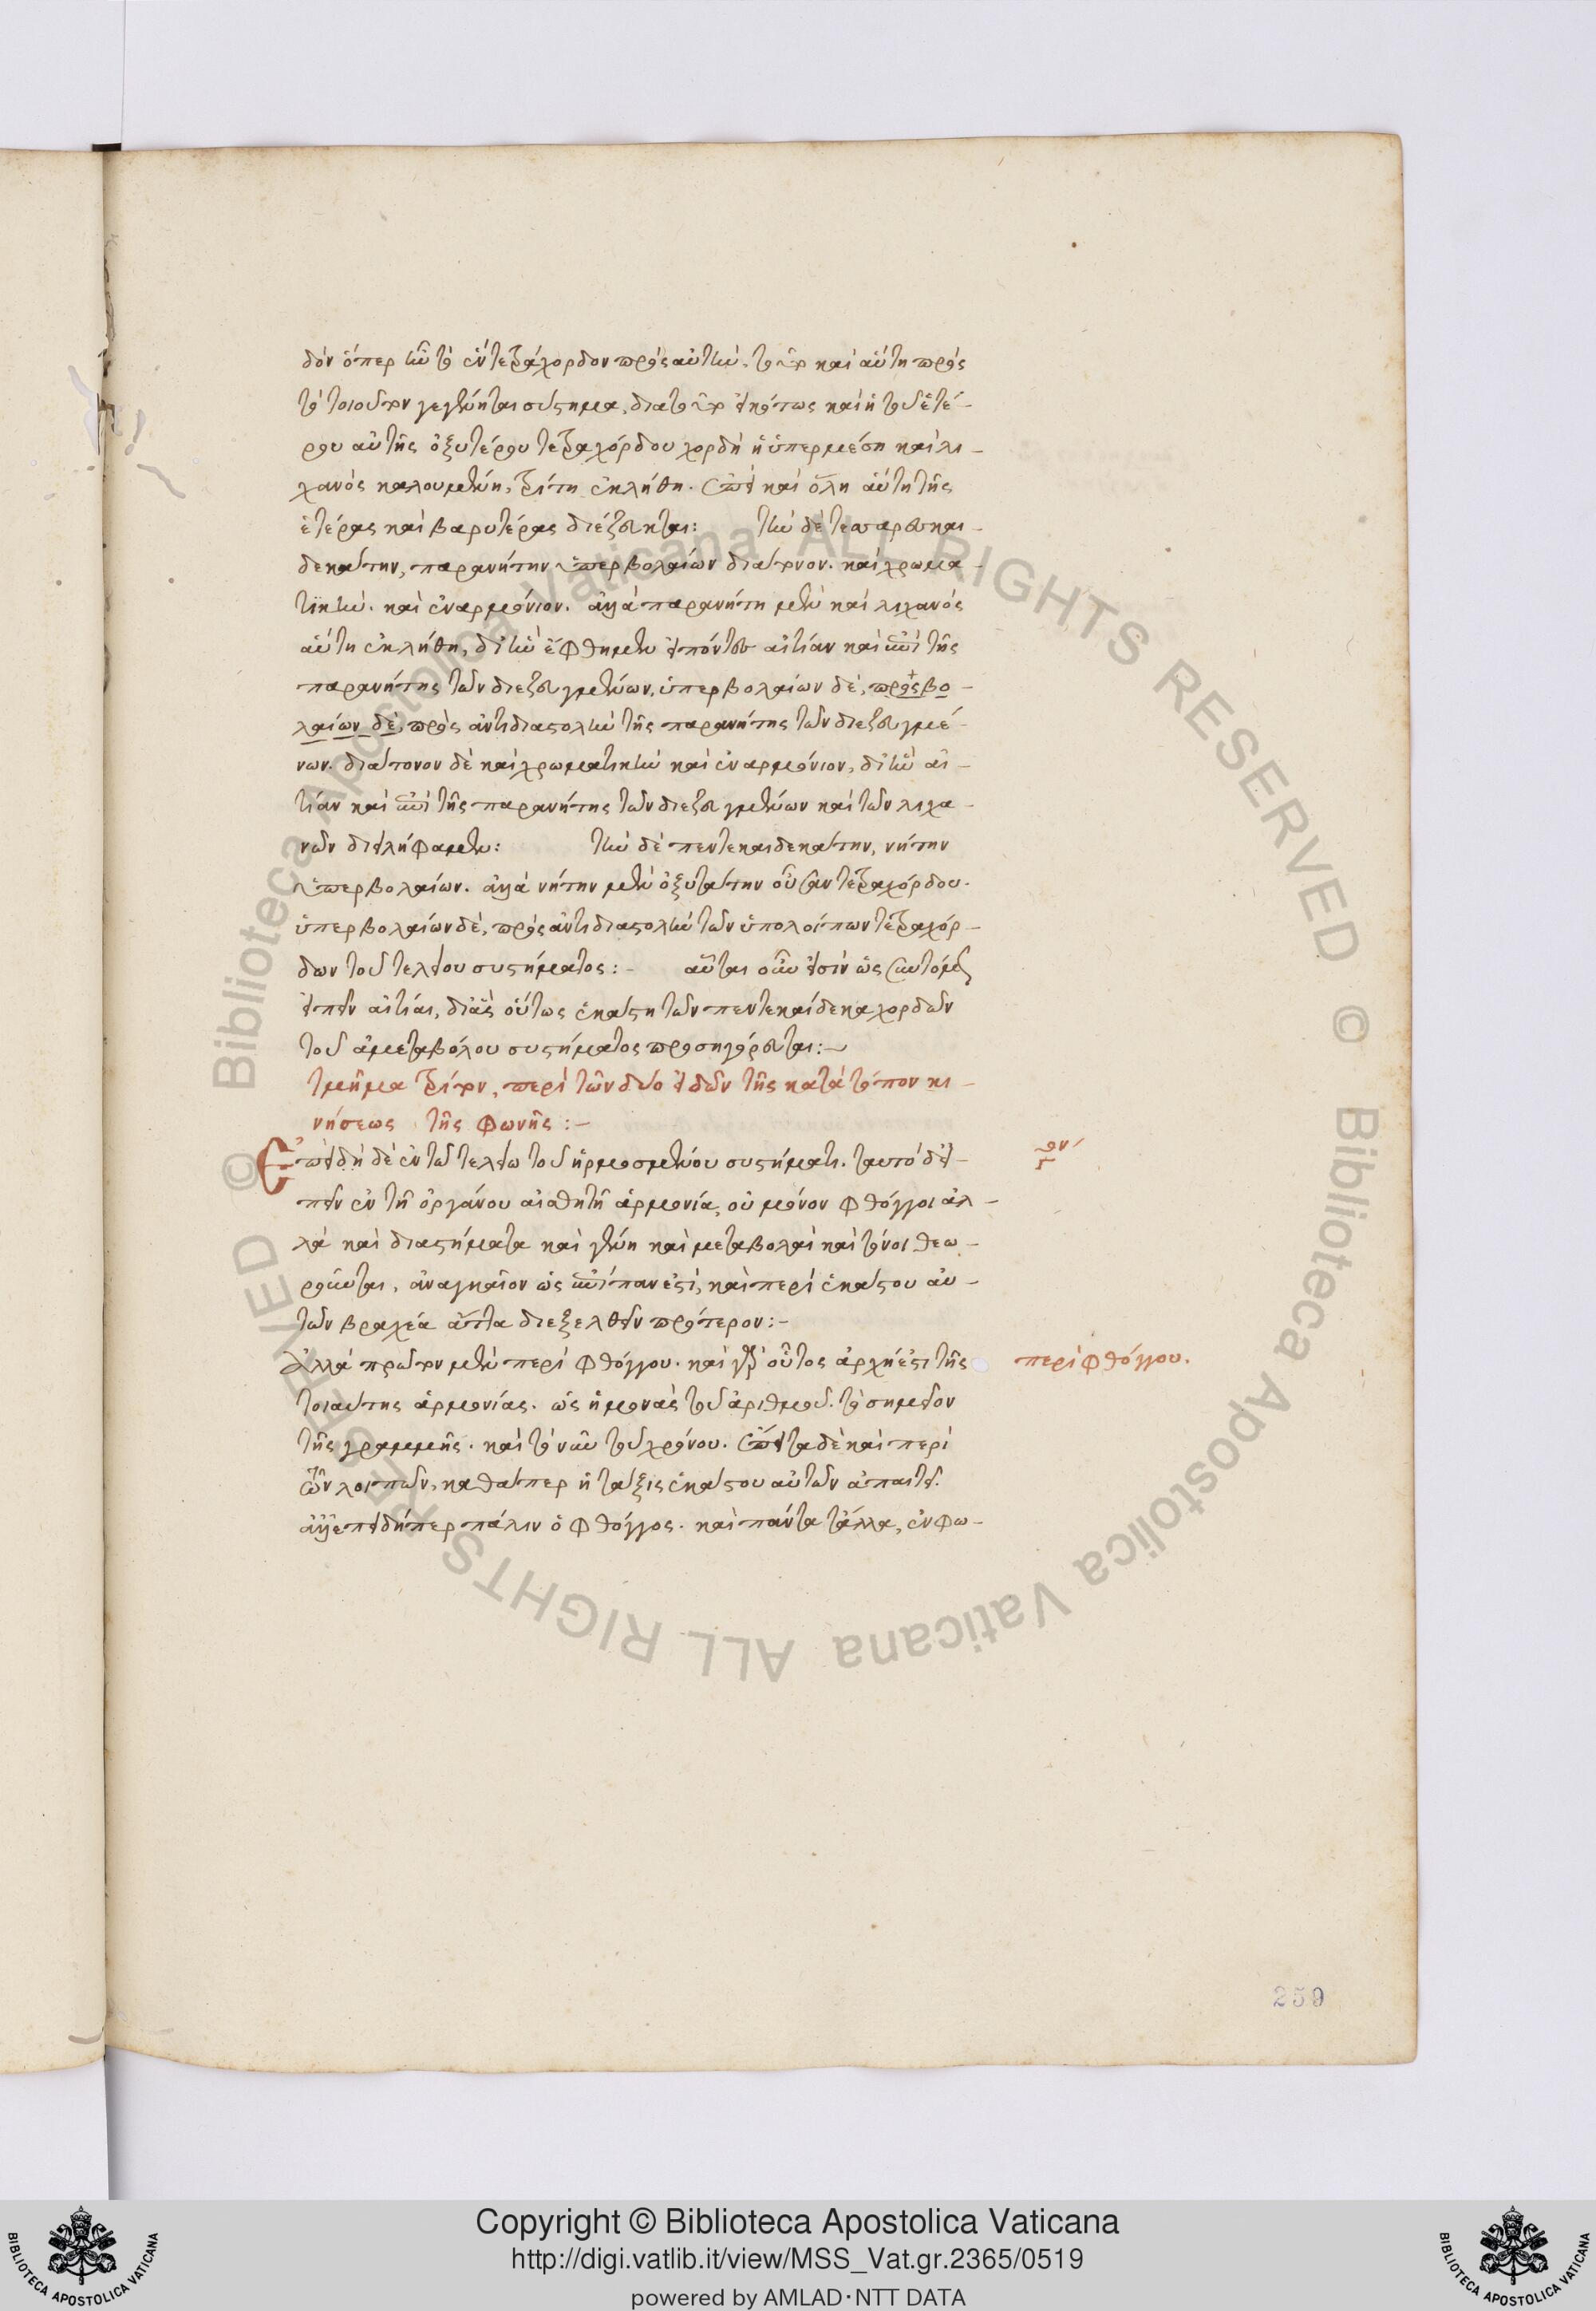 δὸν ὅπερ ἦν τὸ ἓν τετράχορδον πρὸς αὐτήν, τοῦτο καὶ αὕτη πρὸς
τὸ τοιοῦτον γεγένηται σύστημα, διὰ τοῦτο εἰκότως καὶ ἡ τοῦ ἑτέ-
ρου αὐτῆς ὀξυτέρου τετραχόρδου χορδὴ ἡ ὑπερμέση καὶ λι-
χανὸς καλουμένη, τρίτη ἐκλήθη. ἐπεὶ καὶ ὅλη αὕτη τῆς
ἑτέρας καὶ βαρυτέρας διέζευκται: τὴν δὲ τεσσαρεσκαι-
δεκάτην, παρανήτην ὑπερβολαίων διάτονον. καὶ χρωμα-
τικήν. καὶ ἐναρμόνιον. ἀλλὰ παρανήτη μὲν καὶ λιχανὸς
αὕτη ἐκλήθη, δι' ἣν ἔφθημεν εἰπόντες αἰτίαν καὶ ἐπὶ τῆς
παρανήτης τῶν διεζευγμένων, ὑπερβολαίων δὲ, προσβο-
λαίων δὲ, πρὸς ἀντιδιαστολὴν τῆς παρανήτης τῶν διεζευγμέ-
νων. διάτονον δὲ καὶ χρωματικὴν καὶ ἐναρμόνιον, δι' ἣν αἰ-
τίαν καὶ ἐπὶ τῆς παρανήτης τῶν διεζευγμένων καὶ τῶν λιχα-
νῶν διειλήφαμεν: τὴν δὲ πεντεκαιδεκάτην, νήτην
ὑπερβολαίων. ἀλλὰ νήτην μὲν ὀξυτάτην οὖσαν τετραχόρδου.
ὑπερβολαίων δὲ, πρὸς ἀντιδιαστολὴν τῶν ὑπολοίπων τετραχόρ-
δων τοῦ τελείου συστήματος:- αὗται οὖν εἰσὶν ὡς συντόμως
εἰπεῖν αἰτίαι, δι' ἃς οὕτως ἑκάστη τῶν πεντεκαίδεκα χορδῶν
τοῦ ἀμεταβόλου συστήματος προσηγόρευται:-
τμῆμα τρίτον, περὶ τῶν δύο εἰδῶν τῆς κατὰ τόπον κι-
νήσεως τῆς φωνῆς:-
Ἐπειδὴ δὲ ἐν τῷ τελείῳ τοῦ ἡρμοσμένου συστήματι. ταυτὸ δ' εἰ-
πεῖν ἐν τῇ ὀργάνου αἰσθητῇ ἁρμονίᾳ, οὐ μόνον φθόγγοι ἀλ-
λὰ καὶ διαστήματα καὶ γένη καὶ μεταβολαὶ καὶ τόνοι θεω-
ροῦνται, ἀναγκαῖον ὡς ἐπίπαν ἐστὶ, καὶ περὶ ἑκάστου αὐ-
τῶν βραχέα ἅττα διεξελθεῖν πρότερον:-
Ἀλλὰ πρῶτον μὲν περὶ φθόγγου. καὶ γὰρ οὗτος ἀρχή ἐστι τῆς
περὶ φθόγγου.
τοιαύτης ἁρμονίας. ὡς ἡ μονὰς τοῦ ἀριθμοῦ. τὸ σημεῖον
τῆς γραμμῆς. καὶ τὸ νῦν τοῦ χρόνου. ἔπειτα δὲ καὶ περὶ
τῶν λοιπῶν, καθάπερ ἡ τάξις ἑκάστου αὐτῶν ἀπαιτεῖ.
ἀλλ' ἐπειδήπερ πάλιν ὁ φθόγγος. καὶ πάντα τἄλλα, ἐν φω-
259
Copyright © Biblioteca Apostolica Vaticana
http://digi.vatlib.it/view/MSS_Vat.gr.2365/0519
powered by AMLAD·NTT DATA
© Biblioteca Apostolica Vaticana ALL RIGHTS RESERVED
© Biblioteca Apostolica Vaticana ALL RIGHTS RESERVED
BIBLIOTECA APOSTOLICA VATICANA
BIBLIOTECA APOSTOLICA VATICANA